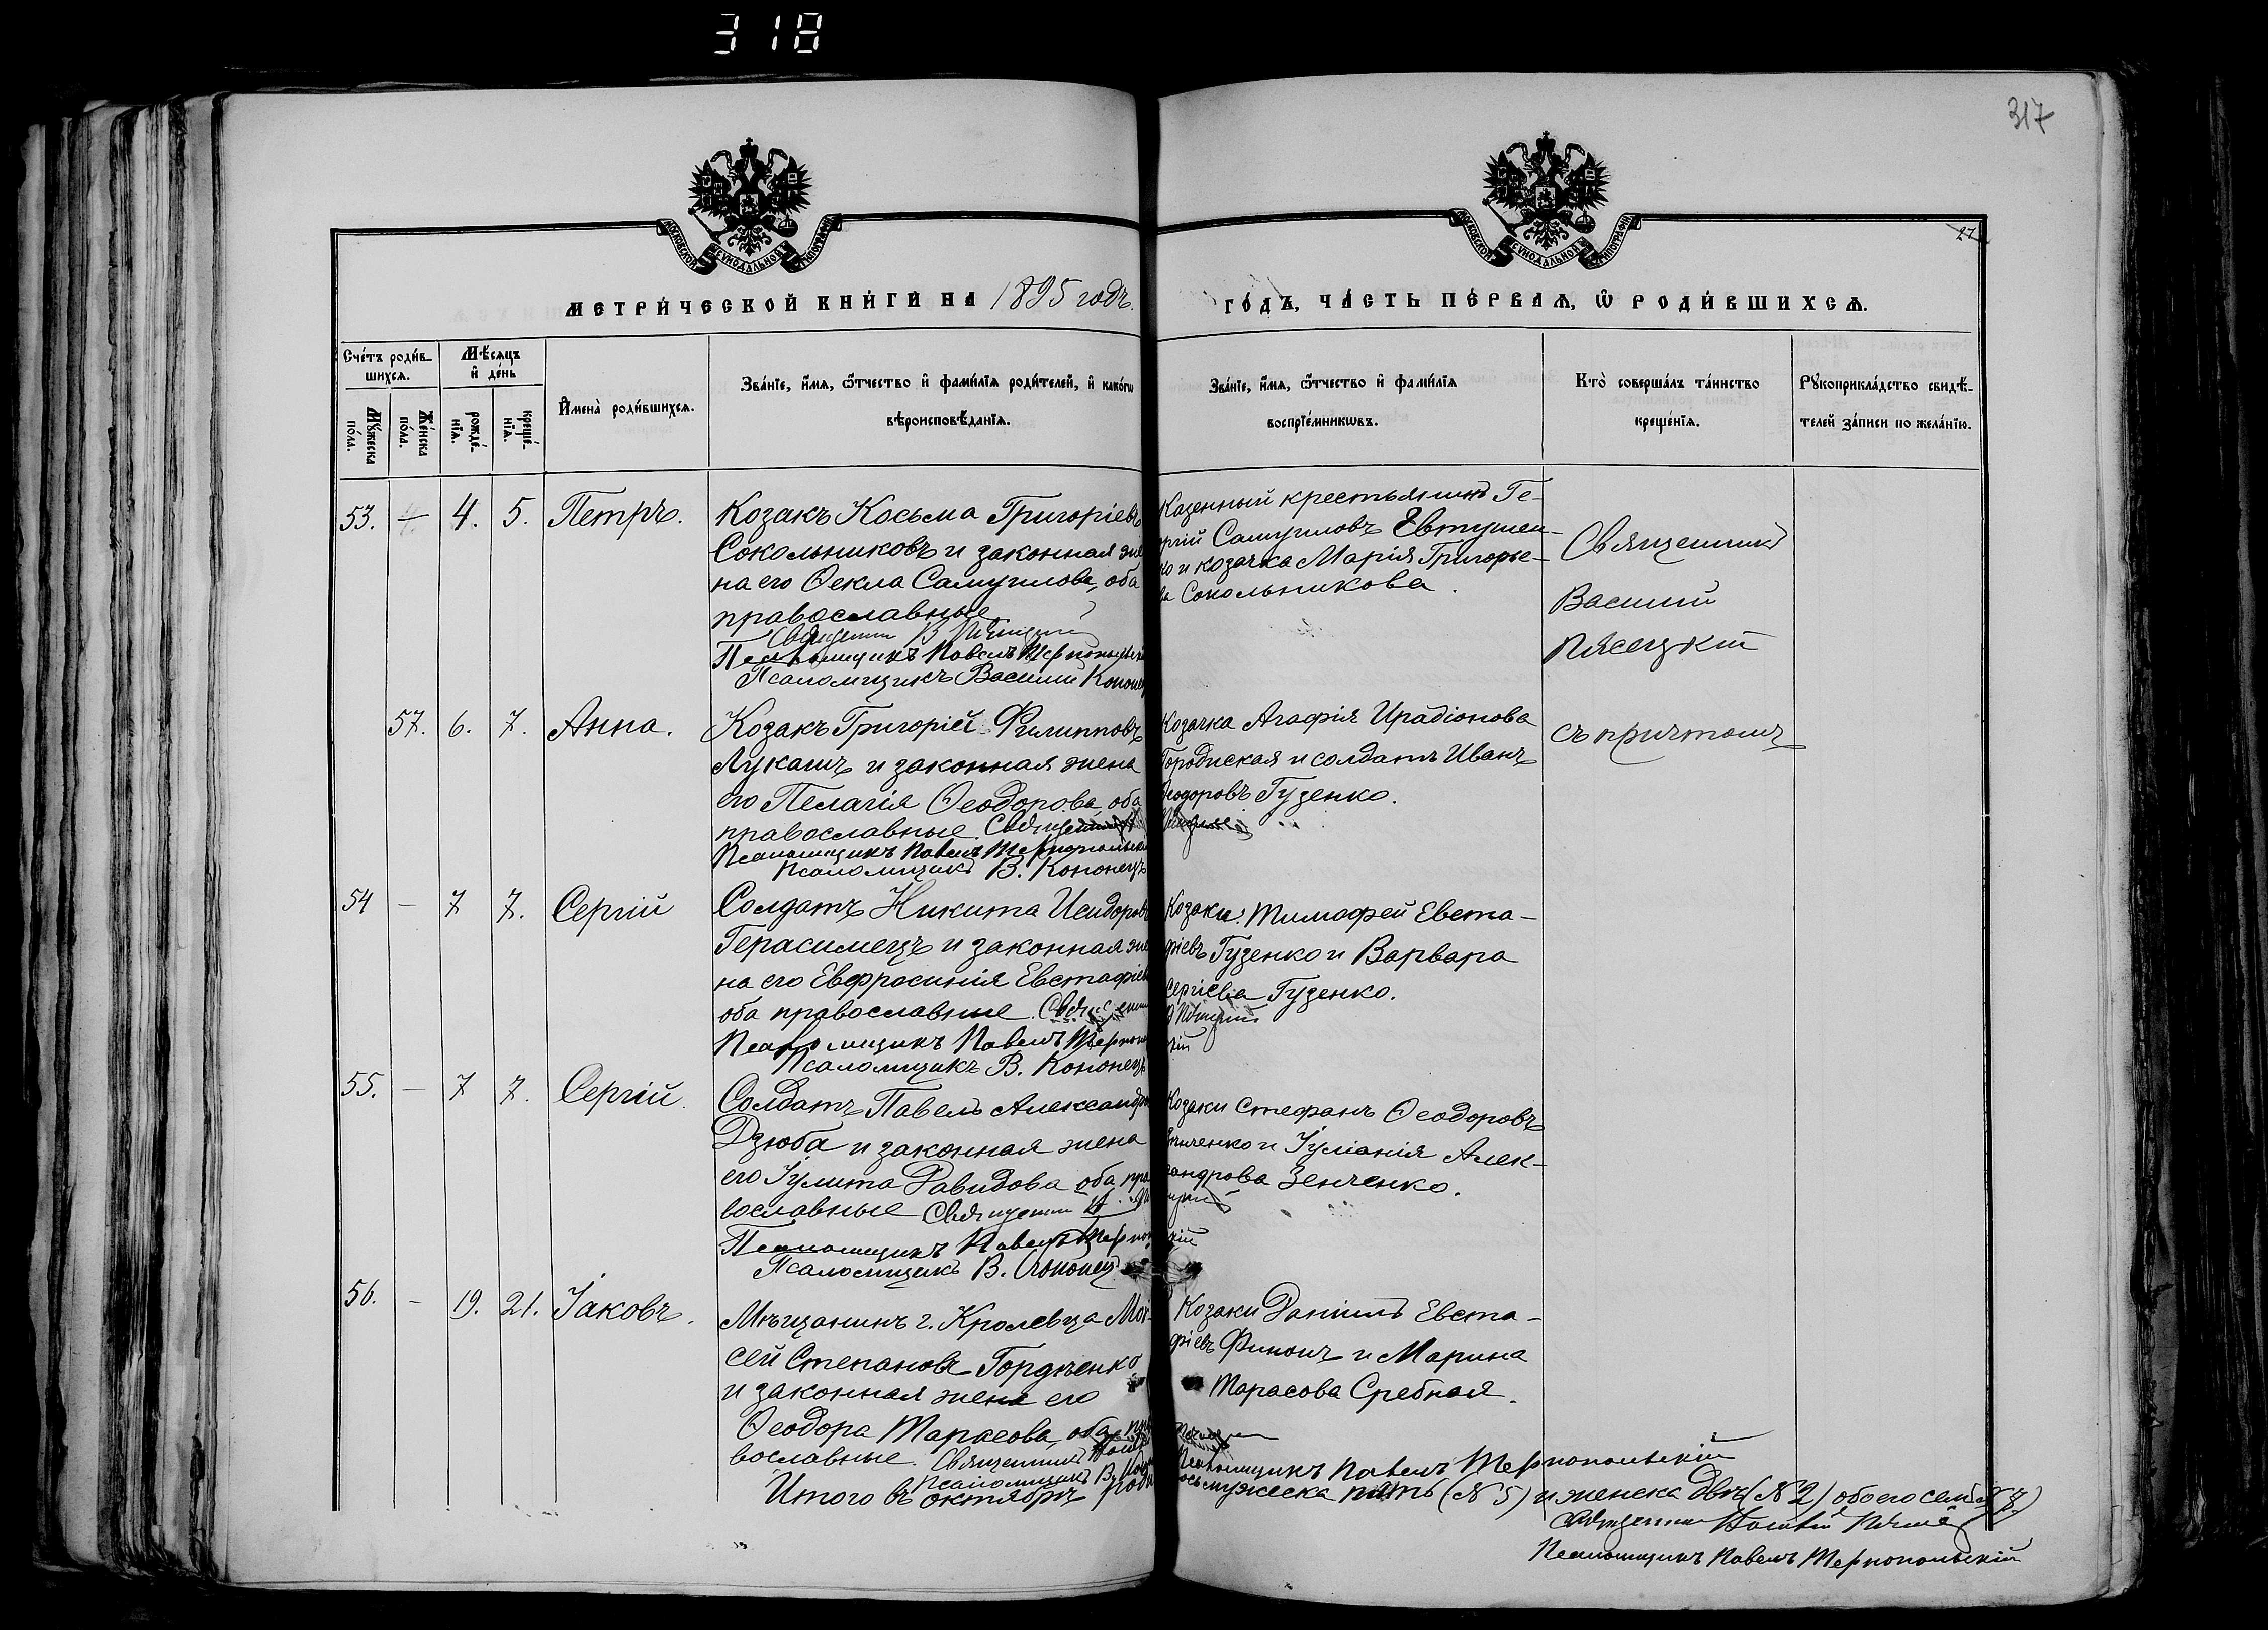 318
317
27
МОСКОВСКОЙ СУНОДАЛЬНОЙ ТИПОГРАФІИ
МОСКОВСКОЙ СУНОДАЛЬНОЙ ТИПОГРАФІИ
МЕТРИ́ЧЕСКОЙ КНИ́ГИ НА 1895 годъ.
ГО́ДЪ, ЧА́СТЬ ПЕ́РВАѦ, Ѡ РОДИ́ВШИХСѦ.
Сче́тъ роди́в-
шихсѧ.
Мꙋ́жеска по́ла.
Же́нска по́ла.
Мѣ́сѧцъ
и҆ де́нь
рожде́-
нїѧ.
креще́-
нїѧ.
И҆мена̀ роди́вшихсѧ.
Зва́нїе, и҆́мѧ, ѻ҆́тчество и҆ фами́лїѧ роди́телей, и҆ како́гѡ
вѣроисповѣ́данїѧ.
Зва́нїе, и҆́мѧ, ѻ҆́тчество и҆ фами́лїѧ
воспрїе́мникѡвъ.
Кто̀ соверша́лъ та́инство
креще́нїѧ.
Рꙋкоприкла́дство свидѣ́-
телей за́писи по жела́нїю.
53. — 4. 5. Петръ.
Козакъ Косьма Григоріевъ
Сокольниковъ и законная же
на его Ѳекла Самуилова, оба
православные
Псаломщикъ Павелъ Тернопольскі
Псаломщикъ Василій Кононец
Казенный крестьянинъ Ге-
оргій Самуиловъ Евтушен-
ко и козачка Марія Григорье-
ва Сокольникова.
Священникъ
Василій
Пясецкій
съ причтомъ
57. 6. 7. Анна.
Козакъ Григорій Филипповъ
Лукашъ и законная жена
его Пелагія Ѳеодорова, оба
православные. Священникъ
Псаломщикъ Павелъ Тернопольскі
Псаломщикъ В. Кононецъ
Козачка Агафія Иродіонова
Городиская и солдатъ Иванъ
Ѳеодоровъ Гузенко.
54 — 7 7. Сергій
Солдатъ Никита Исидоров
Герасимецъ и законная же
на его Евфросинія Евстафіев
оба православные. Священ
Псаломщикъ Павелъ Терноп
Псаломщикъ В. Кононецъ
Козаки: Тимофей Евста-
фіевъ Гузенко и Варвара
Сергіева Гузенко.
55. — 7 7. Сергій.
Солдатъ Павелъ Александр
Дзюба и законная жена
его Іулита Давидова оба пра
вославные Священник
Псаломщикъ Павелъ Терноп
Псаломщикъ В. Кононец
Козаки Стефанъ Ѳеодоровъ
Зѣнченко и Іуліанія Алек-
сандрова Зенченко.
56. — 19. 21. Іаковъ.
Мѣщанинъ г. Кролевца Мої-
сей Степановъ Гордѣенко
и законная жена его
Ѳеодора Тарасова, оба пра
вославные. Священникъ
Псаломщикъ В.
Козаки Даніилъ Евста-
фіевъ Финоич и Марина
Тарасова Сребная.
Псаломщикъ Павелъ Тернопольскій
Итого въ октябрѣ роди
ось мужеска пять (№ 5) и женска двѣ (№ 2) обоего семь (№ 7)
Священник Василій
Псаломщикъ Павелъ Тернопольскій